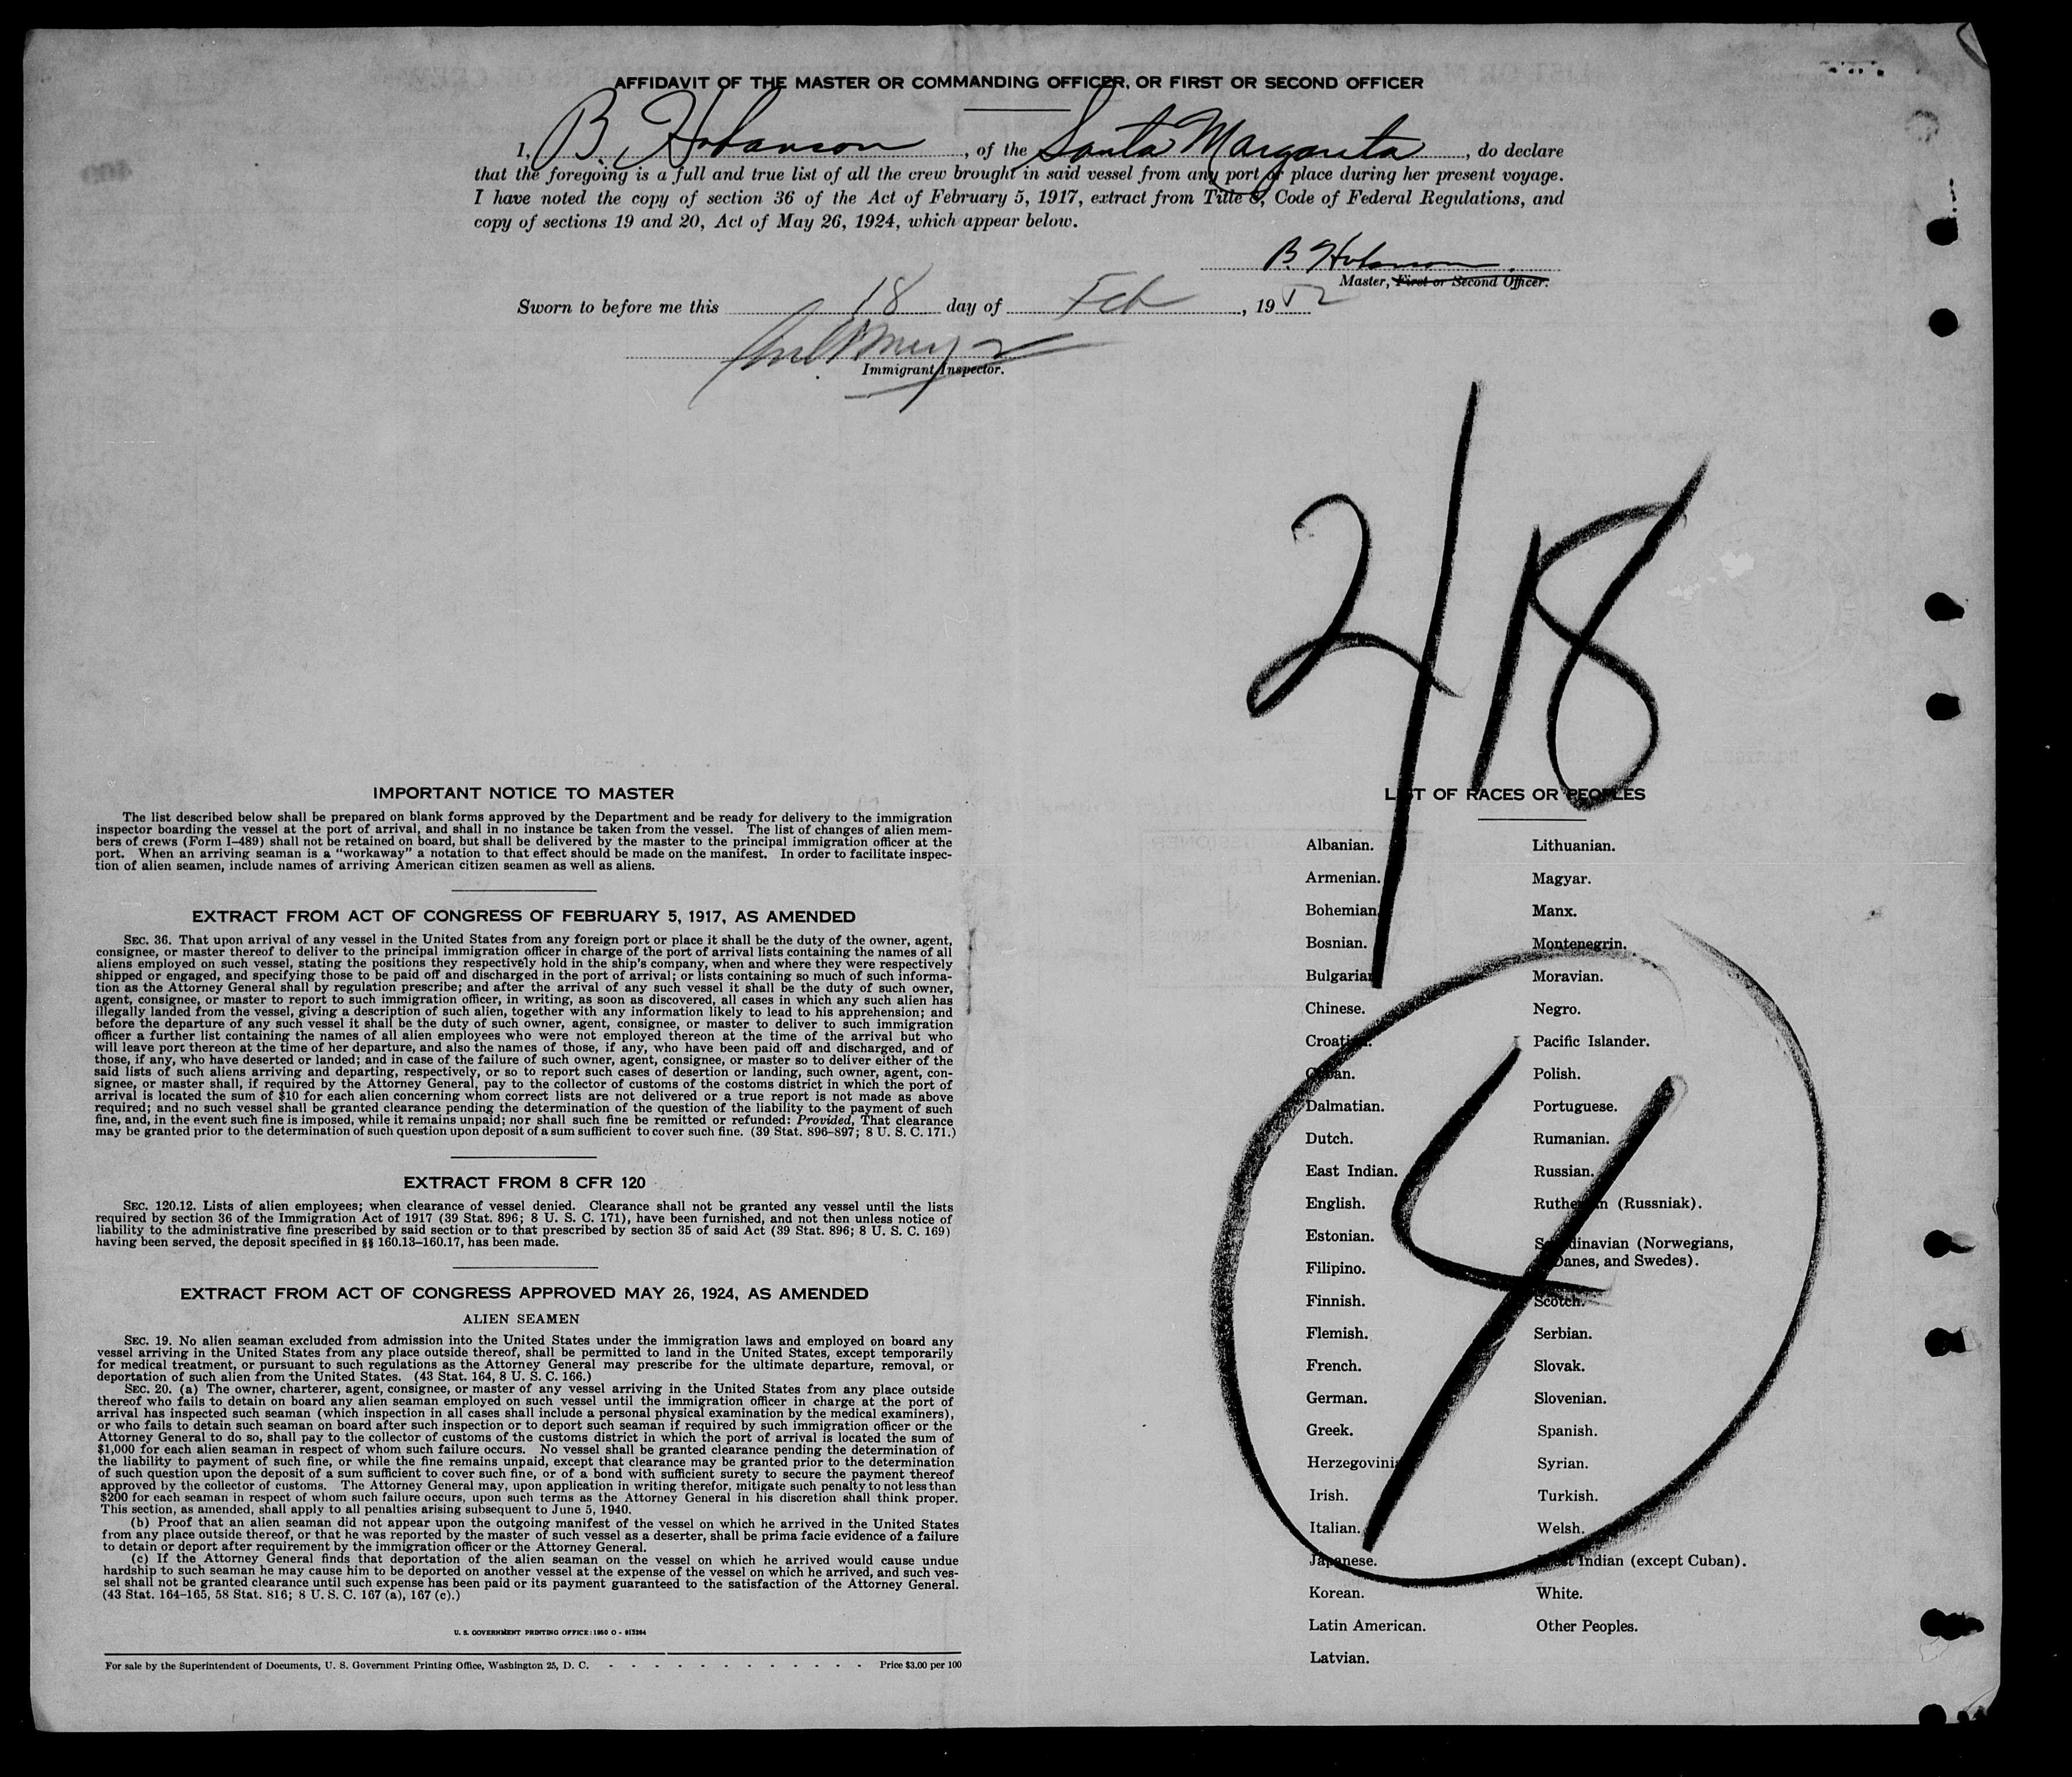 AFFIDAVIT OF THE MASTER OR COMMANDING OFFICER, OR FIRST OR SECOND OFFICER
I, B. , of the Santa Margarita, do declare
that the foregoing is a full and true list of all the crew brought in said vessel from any port or place during her present voyage.
I have noted the copy of section 36 of the Act of February 5, 1917, extract from Title 8, Code of Federal Regulations, and
copy of sections 19 and 20, Act of May 26, 1924, which appear below.
B.
Master, First or Second Officer.
Sworn to before me this 18 day of Feb, 1952
Immigrant Inspector.
2/18
IMPORTANT NOTICE TO MASTER
The list described below shall be prepared on blank forms approved by the Department and be ready for delivery to the immigration
inspector boarding the vessel at the port of arrival, and shall in no instance be taken from the vessel. The list of changes of alien mem-
bers of crews (Form I-489) shall not be retained on board, but shall be delivered by the master to the principal immigration officer at the
port. When an arriving seaman is a "workaway" a notation to that effect should be made on the manifest. In order to facilitate inspec-
tion of alien seamen, include names of arriving American citizen seamen as well as aliens.
EXTRACT FROM ACT OF CONGRESS OF FEBRUARY 5, 1917, AS AMENDED
SEC. 36. That upon arrival of any vessel in the United States from any foreign port or place it shall be the duty of the owner, agent,
consignee, or master thereof to deliver to the principal immigration officer in charge of the port of arrival lists containing the names of all
aliens employed on such vessel, stating the positions they respectively hold in the ship's company, when and where they were respectively
shipped or engaged, and specifying those to be paid off and discharged in the port of arrival; or lists containing so much of such informa-
tion as the Attorney General shall by regulation prescribe; and after the arrival of any such vessel it shall be the duty of such owner,
agent, consignee, or master to report to such immigration officer, in writing, as soon as discovered, all cases in which any such alien has
illegally landed from the vessel, giving a description of such alien, together with any information likely to lead to his apprehension; and
before the departure of any such vessel it shall be the duty of such owner, agent, consignee, or master to deliver to such immigration
officer a further list containing the names of all alien employees who were not employed thereon at the time of the arrival but who
will leave port thereon at the time of her departure, and also the names of those, if any, who have been paid off and discharged, and of
those, if any, who have deserted or landed; and in case of the failure of such owner, agent, consignee, or master so to deliver either of the
said lists of such aliens arriving and departing, respectively, or so to report such cases of desertion or landing, such owner, agent, con-
signee, or master shall, if required by the Attorney General, pay to the collector of customs of the costoms district in which the port of
arrival is located the sum of $10 for each alien concerning whom correct lists are not delivered or a true report is not made as above
required; and no such vessel shall be granted clearance pending the determination of the question of the liability to the payment of such
fine, and, in the event such fine is imposed, while it remains unpaid; nor shall such fine be remitted or refunded: Provided, That clearance
may be granted prior to the determination of such question upon deposit of a sum sufficient to cover such fine. (39 Stat. 896-897; 8 U. S. C. 171.)
EXTRACT FROM 8 CFR 120
SEC. 120.12. Lists of alien employees; when clearance of vessel denied. Clearance shall not be granted any vessel until the lists
required by section 36 of the Immigration Act of 1917 (39 Stat. 896; 8 U. S. C. 171), have been furnished, and not then unless notice of
liability to the administrative fine prescribed by said section or to that prescribed by section 35 of said Act (39 Stat. 896; 8 U. S. C. 169)
having been served, the deposit specified in §§ 160.13-160.17, has been made.
EXTRACT FROM ACT OF CONGRESS APPROVED MAY 26, 1924, AS AMENDED
ALIEN SEAMEN
SEC. 19. No alien seaman excluded from admission into the United States under the immigration laws and employed on board any
vessel arriving in the United States from any place outside thereof, shall be permitted to land in the United States, except temporarily
for medical treatment, or pursuant to such regulations as the Attorney General may prescribe for the ultimate departure, removal, or
deportation of such alien from the United States. (43 Stat. 164, 8 U. S. C. 166.)
SEC. 20. (a) The owner, charterer, agent, consignee, or master of any vessel arriving in the United States from any place outside
thereof who fails to detain on board any alien seaman employed on such vessel until the immigration officer in charge at the port of
arrival has inspected such seaman (which inspection in all cases shall include a personal physical examination by the medical examiners),
or who fails to detain such seaman on board after such inspection or to deport such seaman if required by such immigration officer or the
Attorney General to do so, shall pay to the collector of customs of the customs district in which the port of arrival is located the sum of
$1,000 for each alien seaman in respect of whom such failure occurs. No vessel shall be granted clearance pending the determination of
the liability to payment of such fine, or while the fine remains unpaid, except that clearance may be granted prior to the determination
of such question upon the deposit of a sum sufficient to cover such fine, or of a bond with sufficient surety to secure the payment thereof
approved by the collector of customs. The Attorney General may, upon application in writing therefor, mitigate such penalty to not less than
$200 for each seaman in respect of whom such failure occurs, upon such terms as the Attorney General in his discretion shall think proper.
This section, as amended, shall apply to all penalties arising subsequent to June 5, 1940.
(b) Proof that an alien seaman did not appear upon the outgoing manifest of the vessel on which he arrived in the United States
from any place outside thereof, or that he was reported by the master of such vessel as a deserter, shall be prima facie evidence of a failure
to detain or deport after requirement by the immigration officer or the Attorney General.
(c) If the Attorney General finds that deportation of the alien seaman on the vessel on which he arrived would cause undue
hardship to such seaman he may cause him to be deported on another vessel at the expense of the vessel on which he arrived, and such ves-
sel shall not be granted clearance until such expense has been paid or its payment guaranteed to the satisfaction of the Attorney General.
(43 Stat. 164-165, 58 Stat. 816; 8 U. S. C. 167 (a), 167 (c).)
U. S. GOVERNMENT PRINTING OFFICE: 1950 O - 913264
For sale by the Superintendent of Documents, U. S. Government Printing Office, Washington 25, D. C. - - - - - - - - - - - - Price $3.00 per 100
LIST OF RACES OR PEOPLES
Albanian.
Armenian.
Bohemian.
Bosnian.
Bulgarian.
Chinese.
Croatian.
Cuban.
Dalmatian.
Dutch.
East Indian.
English.
Estonian.
Filipino.
Finnish.
Flemish.
French.
German.
Greek.
Herzegovinian.
Irish.
Italian.
Japanese.
Korean.
Latin American.
Latvian.
Lithuanian.
Magyar.
Manx.
Montenegrin.
Moravian.
Negro.
Pacific Islander.
Polish.
Portuguese.
Rumanian.
Russian.
Ruthenian (Russniak).
Scandinavian (Norwegians,
Danes, and Swedes).
Scotch.
Serbian.
Slovak.
Slovenian.
Spanish.
Syrian.
Turkish.
Welsh.
West Indian (except Cuban).
White.
Other Peoples.
4